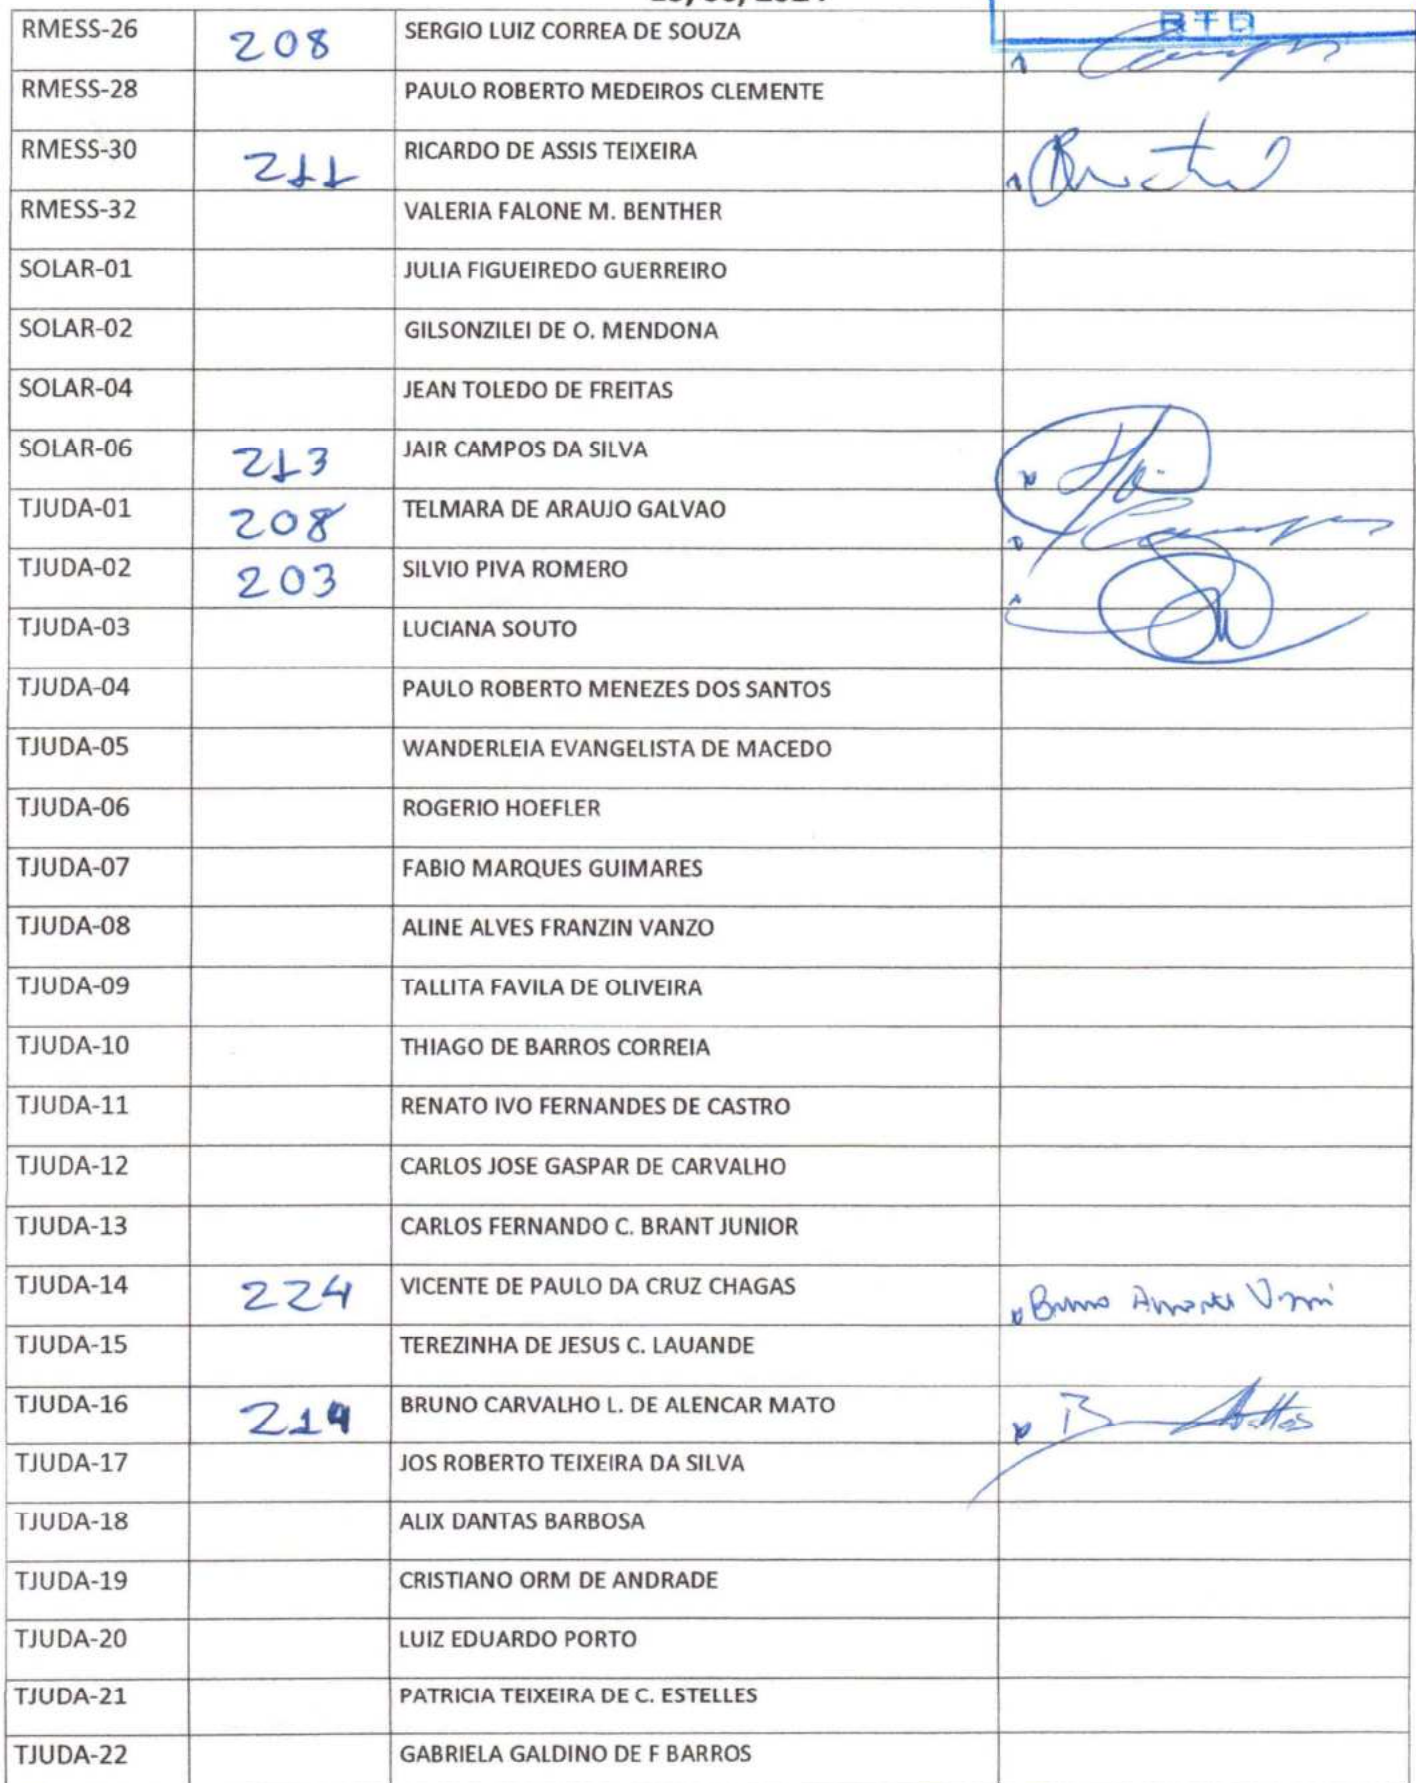 RTD
RMESS-26 208 SERGIO LUIZ CORREA DE SOUZA
RMESS-28 PAULO ROBERTO MEDEIROS CLEMENTE
RMESS-30 211 RICARDO DE ASSIS TEIXEIRA
RMESS-32 VALERIA FALONE M. BENTHER
SOLAR-01 JULIA FIGUEIREDO GUERREIRO
SOLAR-02 GILSONZILEI DE O. MENDONA
SOLAR-04 JEAN TOLEDO DE FREITAS
SOLAR-06 213 JAIR CAMPOS DA SILVA
TJUDA-01 208 TELMARA DE ARAUJO GALVAO
TJUDA-02 203 SILVIO PIVA ROMERO
TJUDA-03 LUCIANA SOUTO
TJUDA-04 PAULO ROBERTO MENEZES DOS SANTOS
TJUDA-05 WANDERLEIA EVANGELISTA DE MACEDO
TJUDA-06 ROGERIO HOEFLER
TJUDA-07 FABIO MARQUES GUIMARES
TJUDA-08 ALINE ALVES FRANZIN VANZO
TJUDA-09 TALLITA FAVILA DE OLIVEIRA
TJUDA-10 THIAGO DE BARROS CORREIA
TJUDA-11 RENATO IVO FERNANDES DE CASTRO
TJUDA-12 CARLOS JOSE GASPAR DE CARVALHO
TJUDA-13 CARLOS FERNANDO C. BRANT JUNIOR
TJUDA-14 224 VICENTE DE PAULO DA CRUZ CHAGAS Bruno
TJUDA-15 TEREZINHA DE JESUS C. LAUANDE
TJUDA-16 214 BRUNO CARVALHO L. DE ALENCAR MATO
TJUDA-17 JOS ROBERTO TEIXEIRA DA SILVA
TJUDA-18 ALIX DANTAS BARBOSA
TJUDA-19 CRISTIANO ORM DE ANDRADE
TJUDA-20 LUIZ EDUARDO PORTO
TJUDA-21 PATRICIA TEIXEIRA DE C. ESTELLES
TJUDA-22 GABRIELA GALDINO DE F BARROS